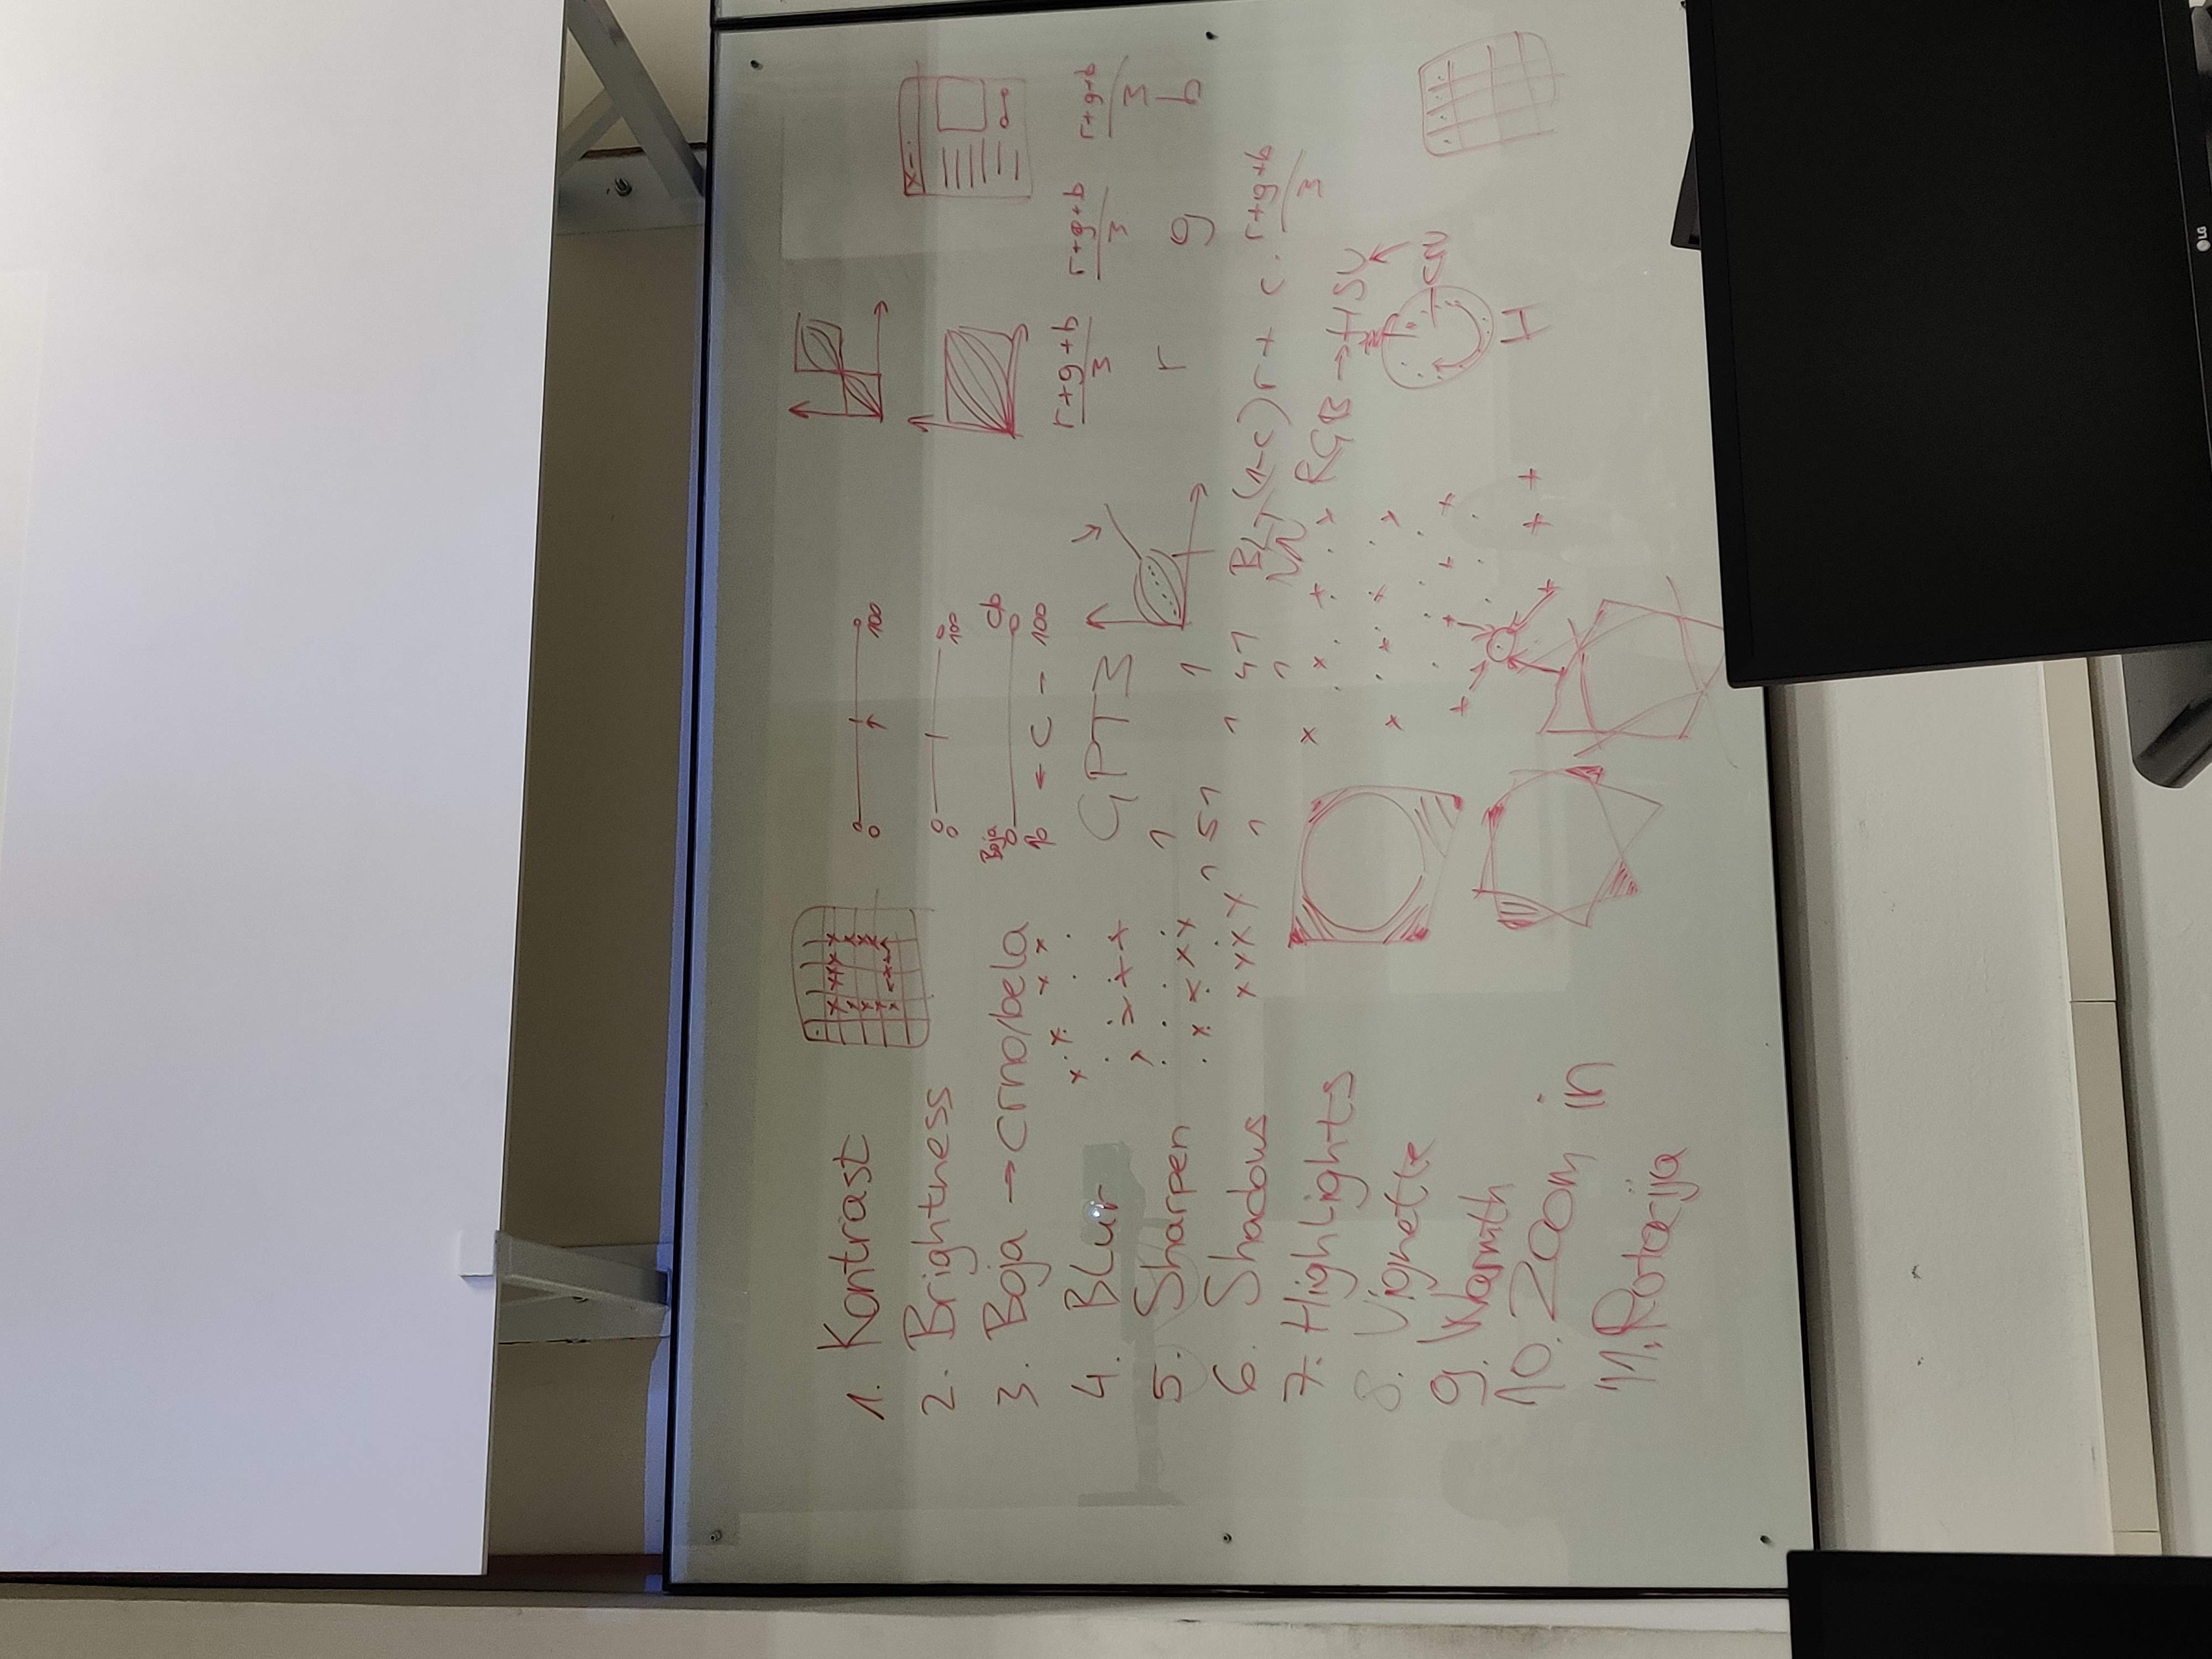 1. Kontrast
2. Brightness
3. Boja → crno/bela
4. Blur
5. Sharpen
6. Shadows
7. Highlights
8. Vignette
9. Warmth
10. Zoom in
11. Rotacija
0 100
0 100
Boja cb
← C – 100
GPT3
1
1 5 1
1
1
1 4 1
1
r+g+b r+g+b r+g+b
3 3 3
r g b
(1-c)r + c · r+g+b
3
RGB → HSV
H
LG